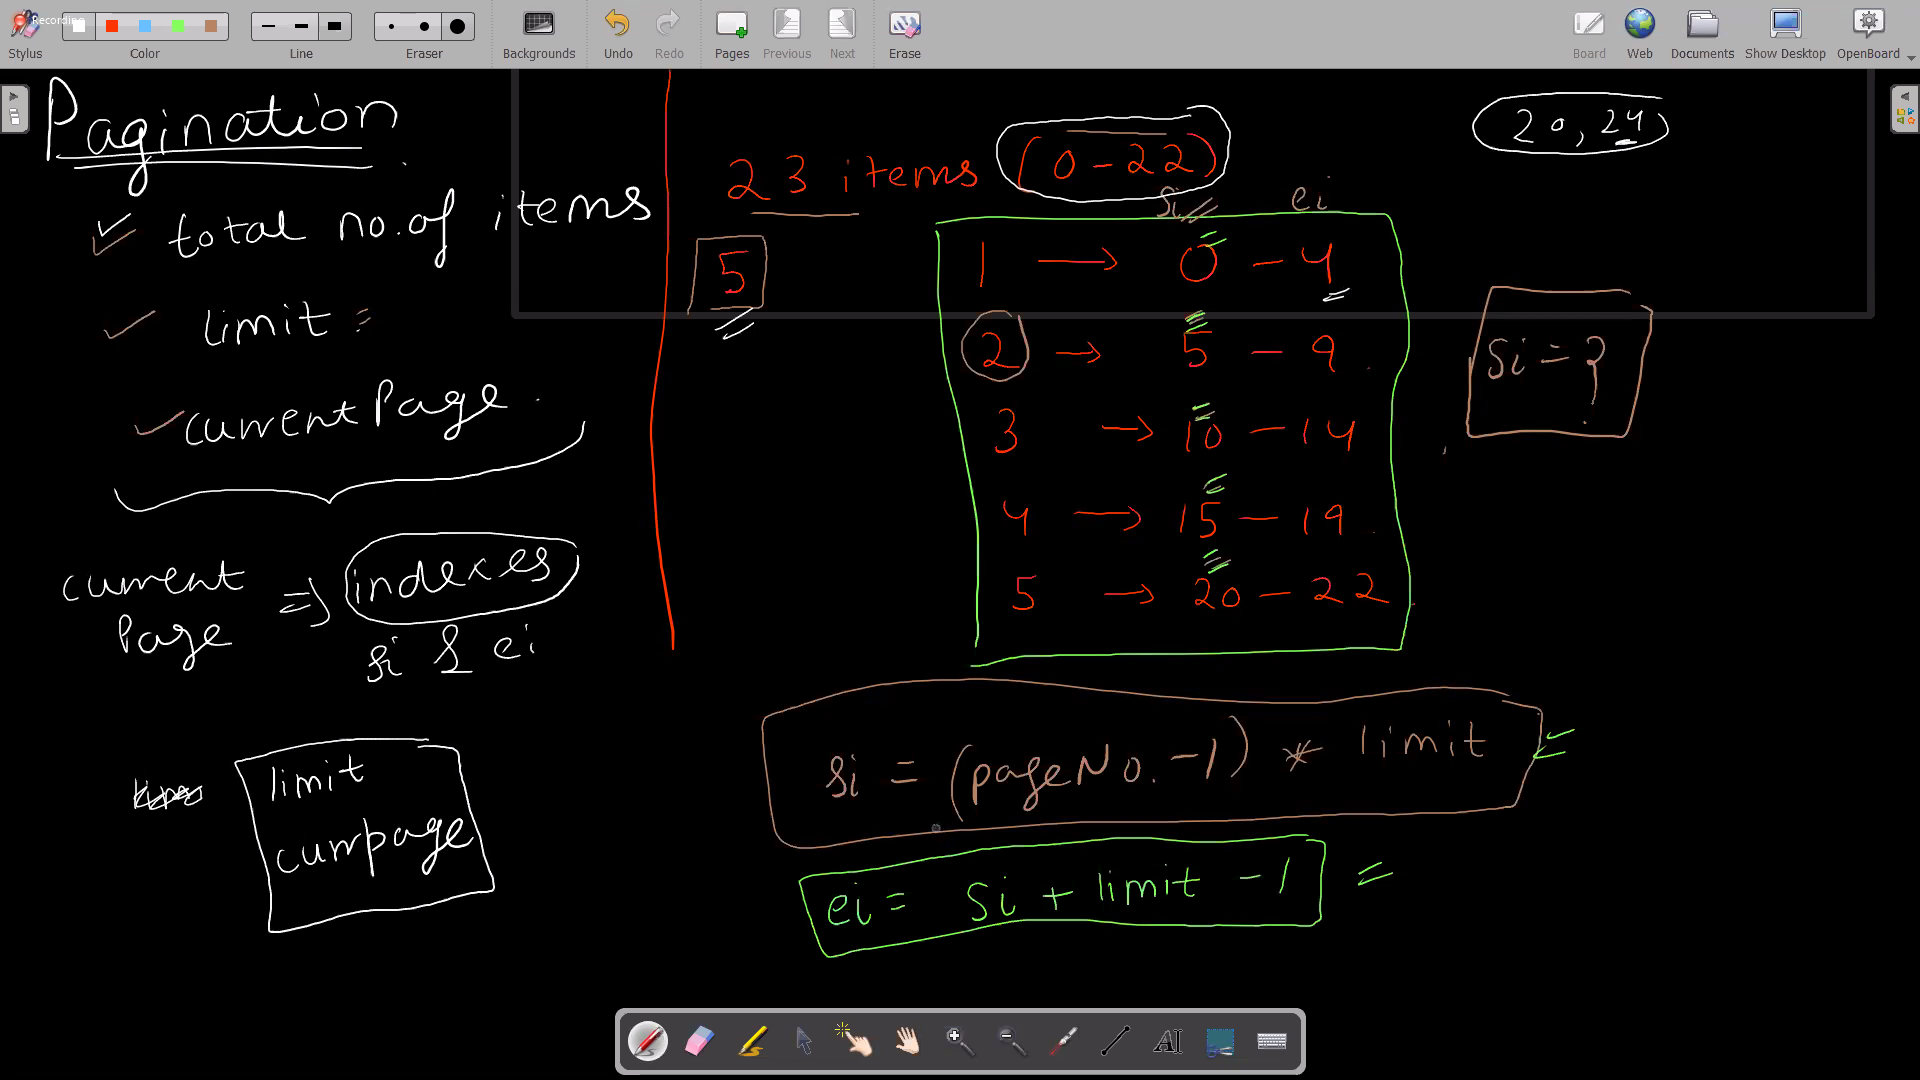 Recording
Stylus
Color
Line
Eraser
Backgrounds
Undo
Redo
Pages
Previous
Next
Erase
Board
Web
Documents
Show Desktop
OpenBoard
Pagination
total no.of items
limit =
currentPage
current Page => indexes
si & ei
limit
currpage
23 items (0-22)
5
si ei
1 → 0 - 4
2 → 5 - 9
3 → 10 - 14
4 → 15 - 19
5 → 20 - 22
20, 24
si = ?
si = (pageNo. -1) * limit
ei = si + limit -1